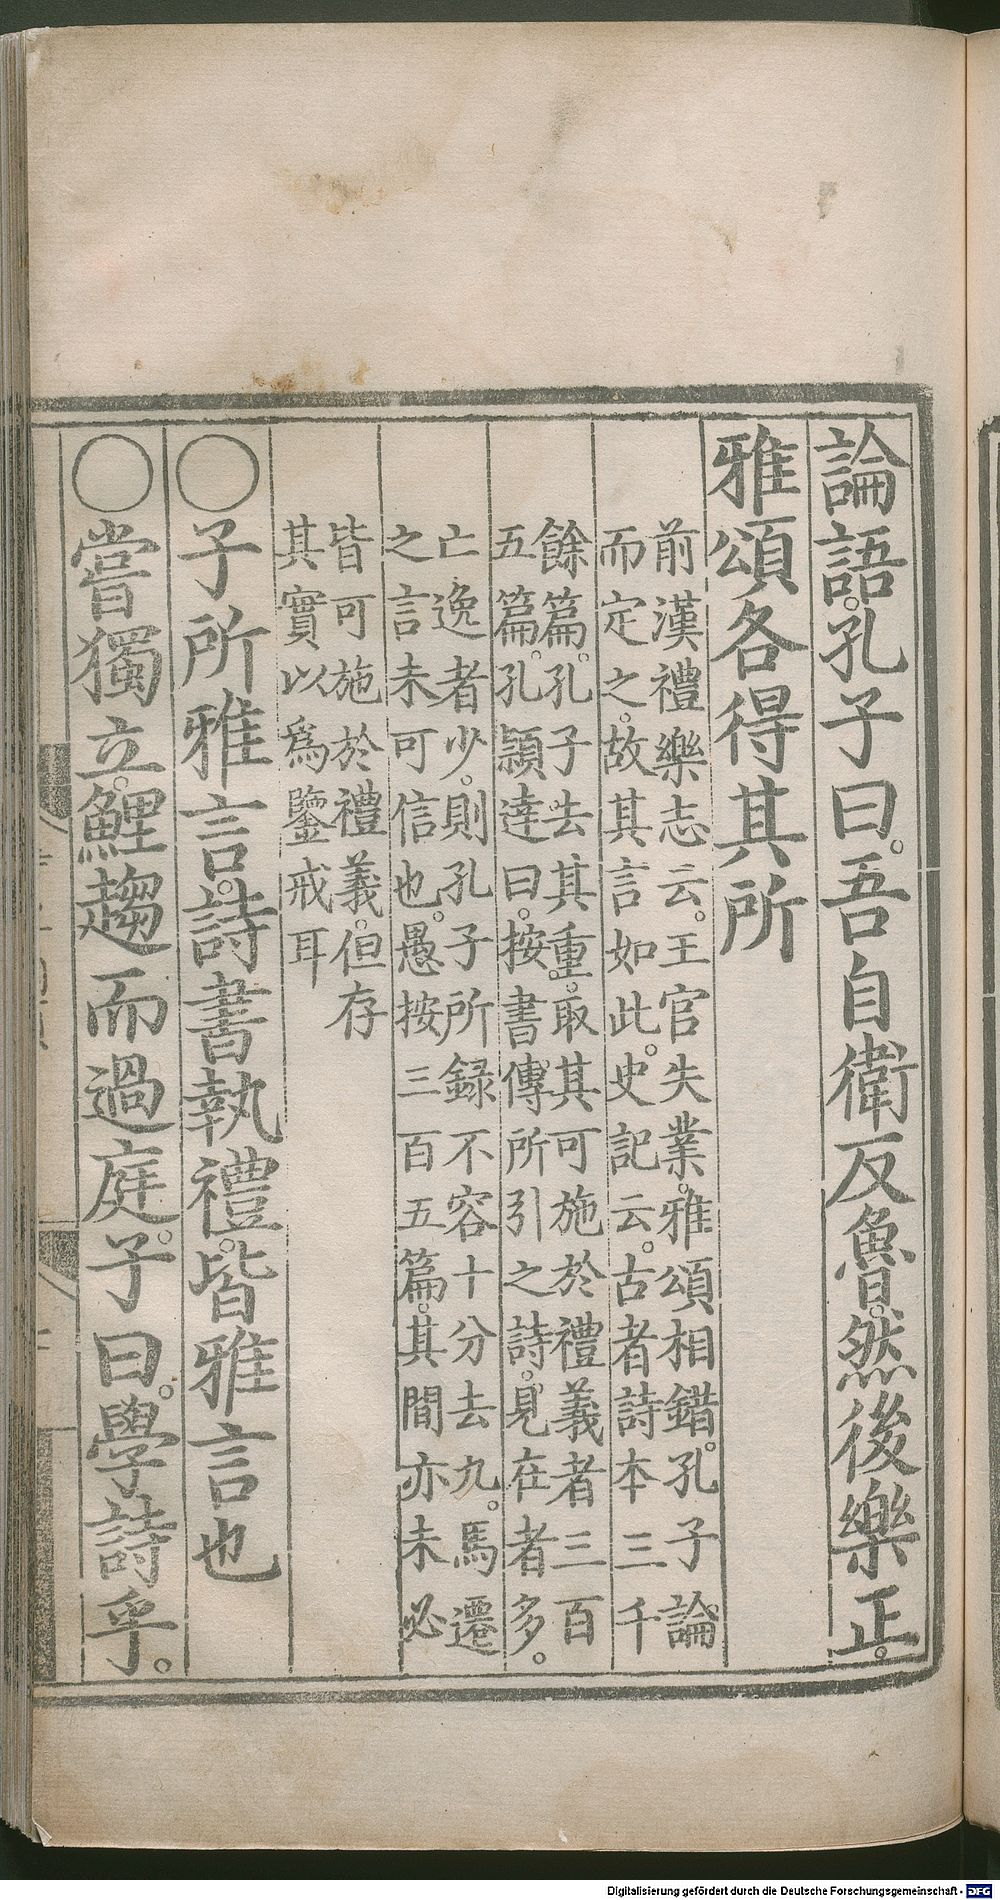 論語。孔子曰。吾自衛反魯。然後樂正。
雅頌各得其所
前漢禮樂志云。王官失業。雅頌相錯。孔子論
而定之。故其言如此。史記云。古者詩本三千
餘篇。孔子去其重。取其可施於禮義者三百
五篇。孔穎達曰。按書傳所引之詩。見在者多。
亡逸者少。則孔子所録不容十分去九。馬遷
之言未可信也。愚按三百五篇。其間亦未必
皆可施於禮義。但存
其實以為鑒戒耳
○子所雅言。詩書執禮。皆雅言也
○嘗獨立。鯉趨而過庭。子曰。學詩乎。
Digitalisierung gefördert durch die Deutsche Forschungsgemeinschaft - DFG